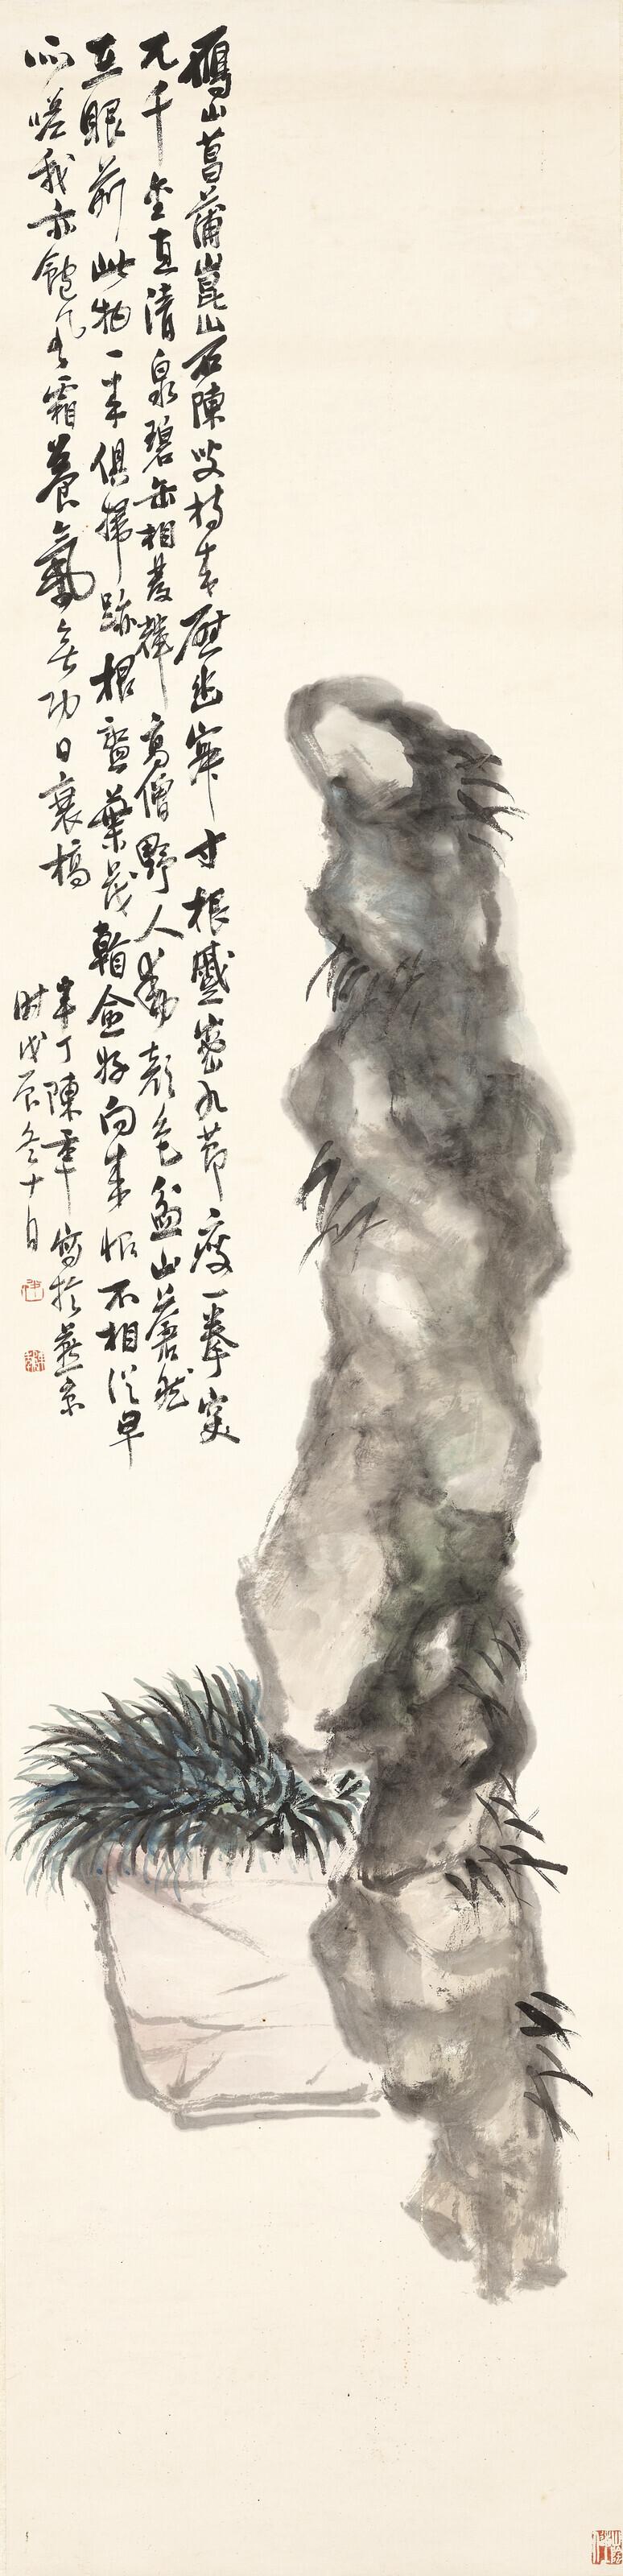 鴈山菖蒲崑山石陳叟持來慰幽寂寸根蹙密九節瘦一拳突
兀千金直清泉碧缶相發輝高僧野人動顏色盆山蒼然
在眼前此物一來俱掃跡根盤葉茂看愈好向來恨不相從早
所嗟我亦飽風霜養氣無功日衰槁
半丁陳年寫於燕京
時戊辰冬十月